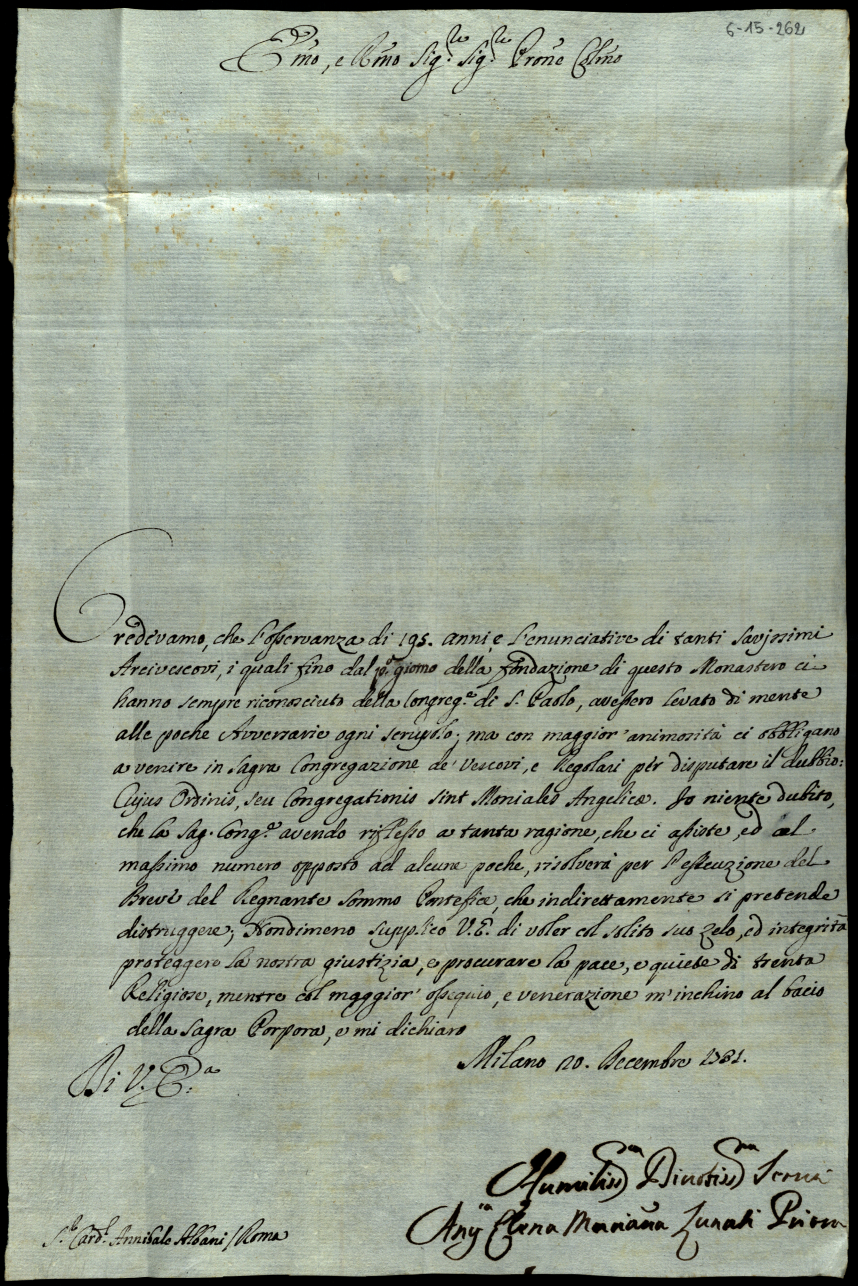 6-15-262
Emo, e Rmo Sig.re Sig.re Prone Colmo
Credevamo, che l'osservanza di 195. anni, e l'enunciative di tanti Savjssimi
Arcivescovi, i quali fino dal p.o giorno della fondazione di questo Monastero ci
hanno sempre riconosciuto della Congreg.e di S. Paolo, avessero levato di mente
alle poche Avversarie ogni scrupolo; ma con maggior' animosità ci obbligano
a venire in Sagra Congregazione de' Vescovi, e Regolari per disputare il dubbio:
Cujus Ordinis, seu Congregationis sint Moniales Angelicæ. Io niente dubito,
che la Sag. Cong.e avendo riflesso a tanta ragione, che ci assiste, ed al
massimo numero opposto ad alcune poche, risolverà per l'esecuzione del
Breve del Regnante Sommo Pontefice, che indirettamente si pretende
distruggere; Nondimeno supplico V.E. di voler col solito suo zelo, ed integrità
proteggere la nostra giustizia, e procurare la pace, e quiete di trenta
Religiose, mentre col maggior' ossequio, e venerazione m'inchino al bacio
della Sagra Porpora, e mi dichiaro
Milano 20. Decembre
Di V. E.a
Humiliss.ma Divotiss.ma Serva
Elena Mariana Lunati Priora
S.r Card.l Annibale Albani / Roma